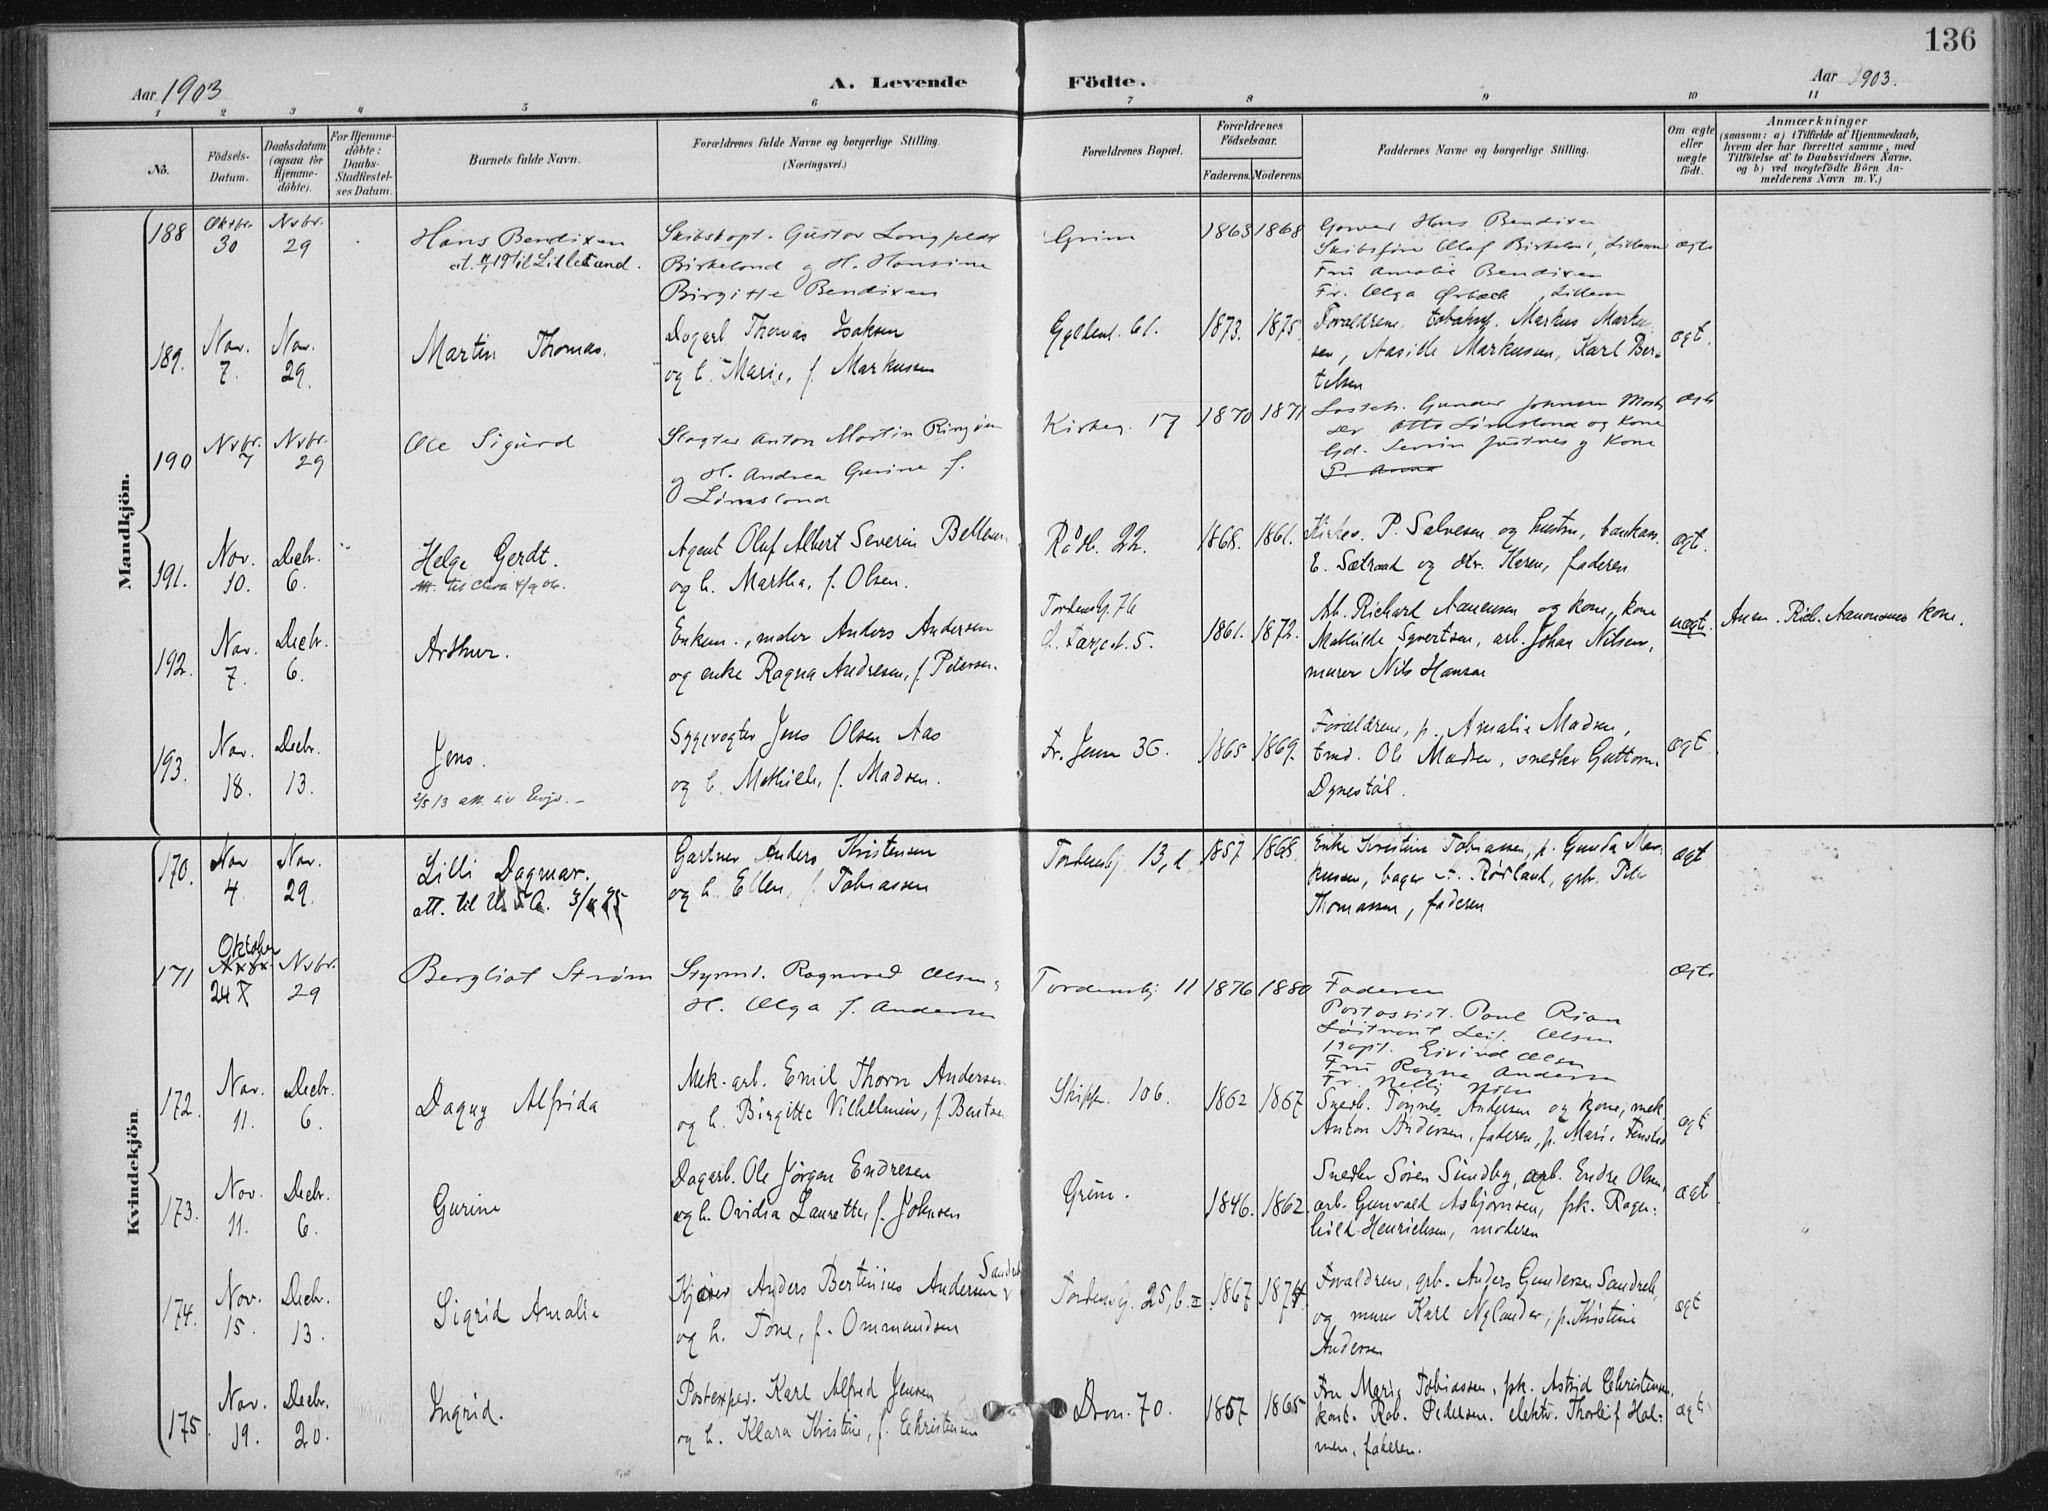 136
Aar 1903
A. Levende
Födte.
Aar 1903.
1 2 3 4 5 6 7 8 9 10 11
No.
Födsels-
Datum.
Daabsdatum
(ogsaa for
Hjemme-
döbte).
For Hjemme-
döbte:
Daabs-
Stadfæstel-
ses Datum.
Barnets fulde Navn.
Forældrenes fulde Navne og borgerlige Stilling.
(Næringsvei.)
Forældrenes Bopæl.
Forældrenes
Födselsaar.
Faderens. Moderens.
Faddernes Navne og borgerlige Stilling.
Om ægte
eller
uægte
født.
Anmærkninger
(saasom: a) i Tilfælde af Hjemmedaab,
hvem der har forrettet samme, med
Tilföielse af to Daabsvidners Navne.
og b) ved uægtefödte Börn An-
melderens Navn m. V.)
Mandkjön.
188 Oktbr. 30 Nvbr. 29
Hans Bendixen
til Lillesand.
Skibskapt. Gustav
Birkeland og H. Hansine
Birgitte Bendixen
Grim
1863 1868
Hans Bendixen
Skibsfører Olaf Birkeland,
Fru Amalie Bendixen
Fr. Olga
ægte
189. Nov. 7. Nov. 29.
Martin Thomas.
Dagarb. Thomas Isaksen
og h. Marie, f. Markussen
Gyldenl. 61.
1873. 1875.
Forældrene, Markus Marku-
sen, Markusen, Karl Ber-
telsen
ægt.
190 Nvbr. 7 Nvbr. 29
Ole Sigurd
Slagter Anton Martin
og H. Andrea Gurine f.
Lømsland
Kirkeg. 17
1870 1871
Gunder Johnsen
Otto Lømsland og Kone
Justnes og Kone
ægte
191. Nov. 10. Decbr. 6.
Helge Gerdt.
Agent Olaf Albert Severin
og h. Martha, f. Olsen.
Raadh. 22.
1868. 1861.
P. Salvesen og hustru, bankass.
E. og Karen, faderen
ægt.
192. Nov. 7. Decbr. 6.
Arthur.
Enkem., maler Anders Andersen
og enke Ragna Andresen, f. Petersen.
Tordensg. 76
1861. 1872.
Arb. Richard og kone,
Mathilde Syvertsen, arb. Johan Nilsen,
murer Nils Hansen
uægt.
Anm. kone.
193. Nov. 18. Decbr. 13.
Jens.
Sygevogter Jens Olsen Aas
og h. Mathilde, f. Madsen.
1865 1869.
Forældrene, p. Amalie Madsen,
Ole Madsen, snedker Guttorm
Dynestøl.
ægt
Kvindekjön.
170. Nov 4. Nov. 29.
Lilli Dagmar.
att. til USA.
Gartner Anders Kristensen
og h. Ellen, f. Tobiassen
Tordenskj. 13,
1857 1868.
Enke Kristine Tobiassen, p. Gunda Mar-
kussen, bager A. Rørland, arb. Peder
Thomassen, faderen
ægt
171 Oktober 24 Nvbr. 29
Bergliot Strøm
Styrmd. Ragnvald Olsen og
H. Olga f. Andersen
Tordenskj 11
1876 1880
Faderen
Postassist. Paul Rian
Løitnant Leif Olsen
Eivind Olsen
Fru Ragna Andersen
Fr. Nelly
ægte
172. Nov. 11. Decbr. 6.
Dagny Alfrida
Mek. arb. Emil Thorn Andersen
og h. Birgitte Vilhelmine, f. Bentsen
Skippr. 106.
1862 1867
Snedk. Tønnes Andersen og kone, mek.
Anton Andersen, faderen, p. Marie
ægt
173. Nov. 11. Decbr. 6.
Gurine
Dagarb. Ole Jørgen Endresen
og h. Ovidia Laurette, f. Johnsen
Grim.
1846. 1862.
Snedker Søren Sundby, arb. Endre Olsen,
arb. Gunvald Asbjørnsen, pk. Ragn-
hild Henrichsen, moderen
ægt
174. Nov. 15. Decbr. 13.
Sigrid Amalie
Kjører Anders Bertinius Andersen
og h. Tone, f. Ommundsen
Tordenskj. 25, b. II
1867 1874.
Forældrene, arb. Anders Gundersen
og murer Karl Nylander, p. Kristine
Andersen
ægt
175. Nov. 19. Decbr. 20.
Ingrid.
Postexper. Karl Alfred Jensen
og h. Klara Kristine, f. Christensen
Dron. 70.
1857 1865
Fru Marie Tobiassen, pk. Astrid Christensen,
kont. Rob. Pedersen. elektr. Thorleif Hal-
men, faderen.
ægt